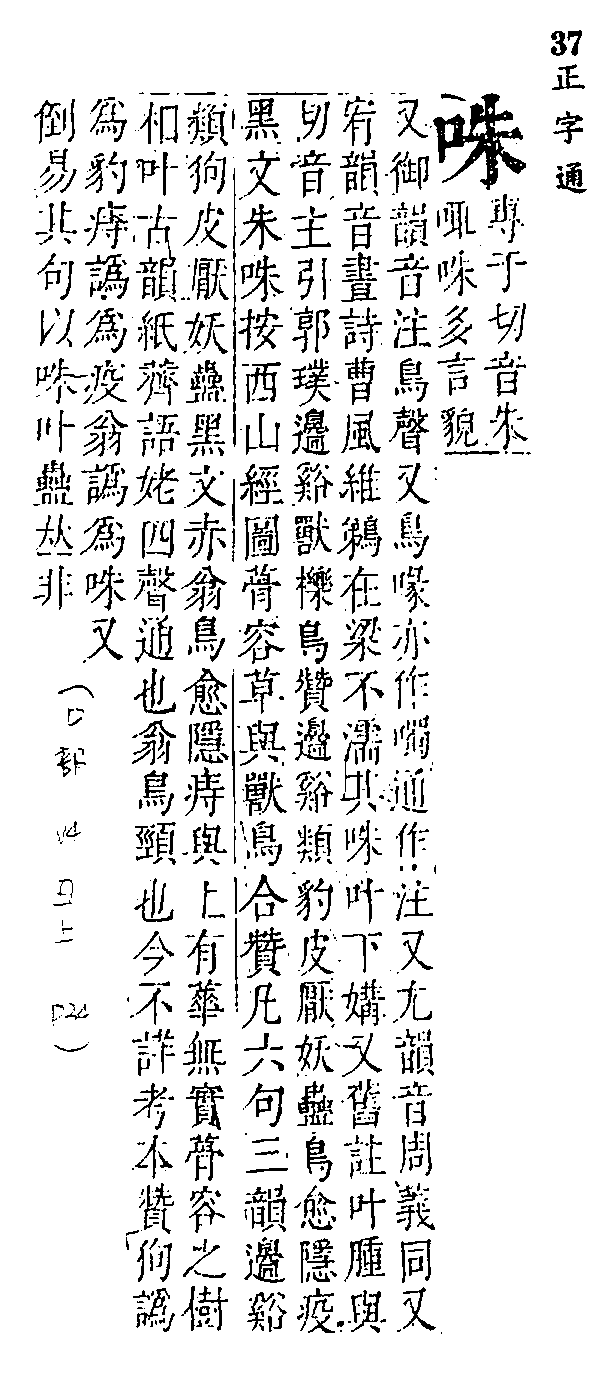 37
正字通
咮
專于切音朱
咮多言貌
又御韻音注鳥聲又鳥喙亦作噣通作注又尤韻音周義同又
宥韻音晝詩曹風維鵜在梁不濡其咮叶下媾又舊註叶腫與
切音主引郭璞邊谿獸櫟鳥贊邊谿類豹皮厭妖蠱鳥愈隱疫
黑文朱咮按西山經圖蓇容草與獸鳥合贊凡六句三韻邊谿
類狗皮厭妖蠱黑文赤翁鳥愈隱痔與上有華無實蓇容之樹
相叶古韻紙薺語姥四聲通也翁鳥頸也今不詳考本贊狗譌
為豹痔譌為疫翁譌為咮又
倒易其句以咮叶蠱𠀤非
(口部 V4 丑上 P24)